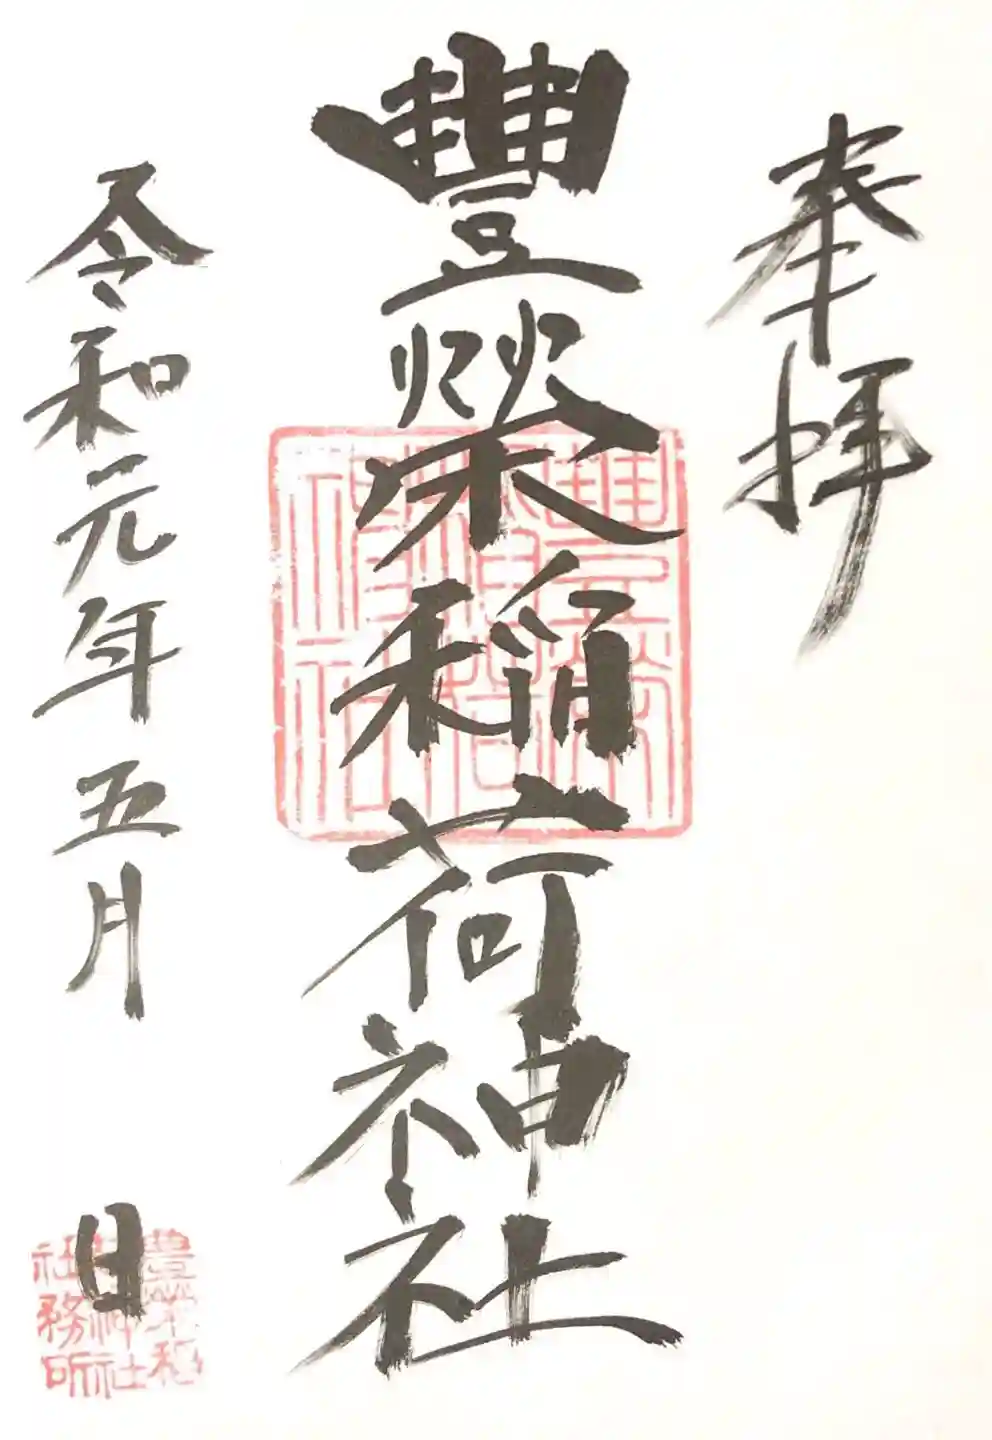 奉拝
豊榮稲荷神社
令和元年五月 日
豊榮稲
荷神社
社務所